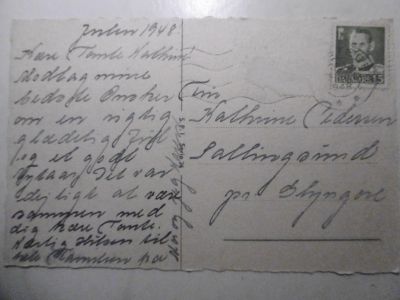 Julen 1948
Kære Tante Kathrine
modtag mine
bedste Ønsker
om en rigtig
glædelig Jul
og et godt
Nytaar. Det var
dejligt at være
sammen med
dig kære Tante.
Kærlig Hilsen til
hele Familien fra
Frk
Kathrine Pedersen
Sallingsund
pr Glyngøre
1948
15